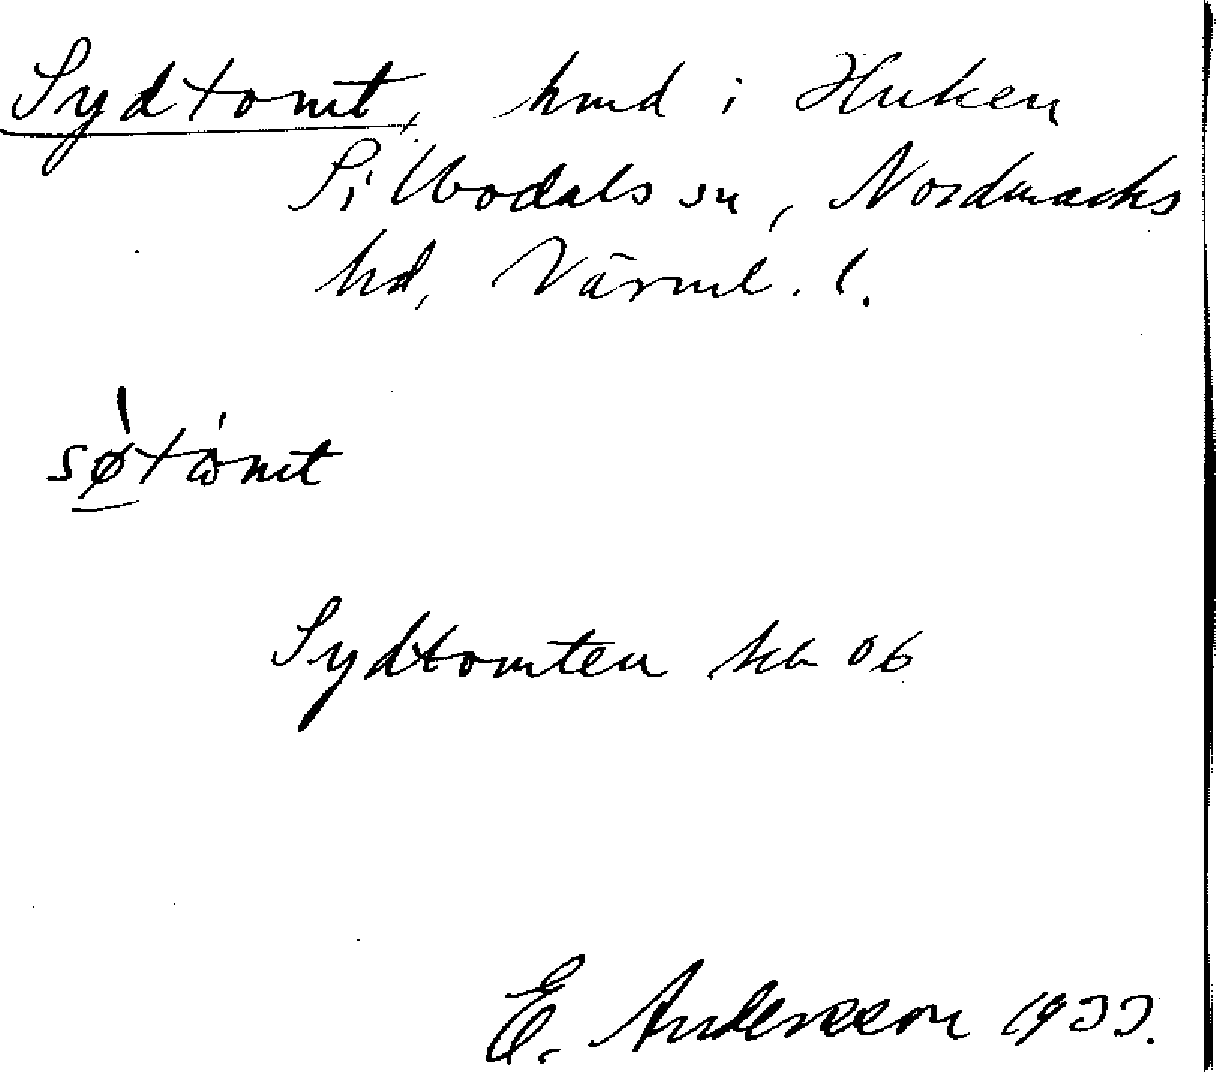 Sydtomt, hmd i Huken
Silbodals sn, Nordmarks
hd, Värml. l.
søtòmt
Sydtomten kb 06
E. Andersson 1933.